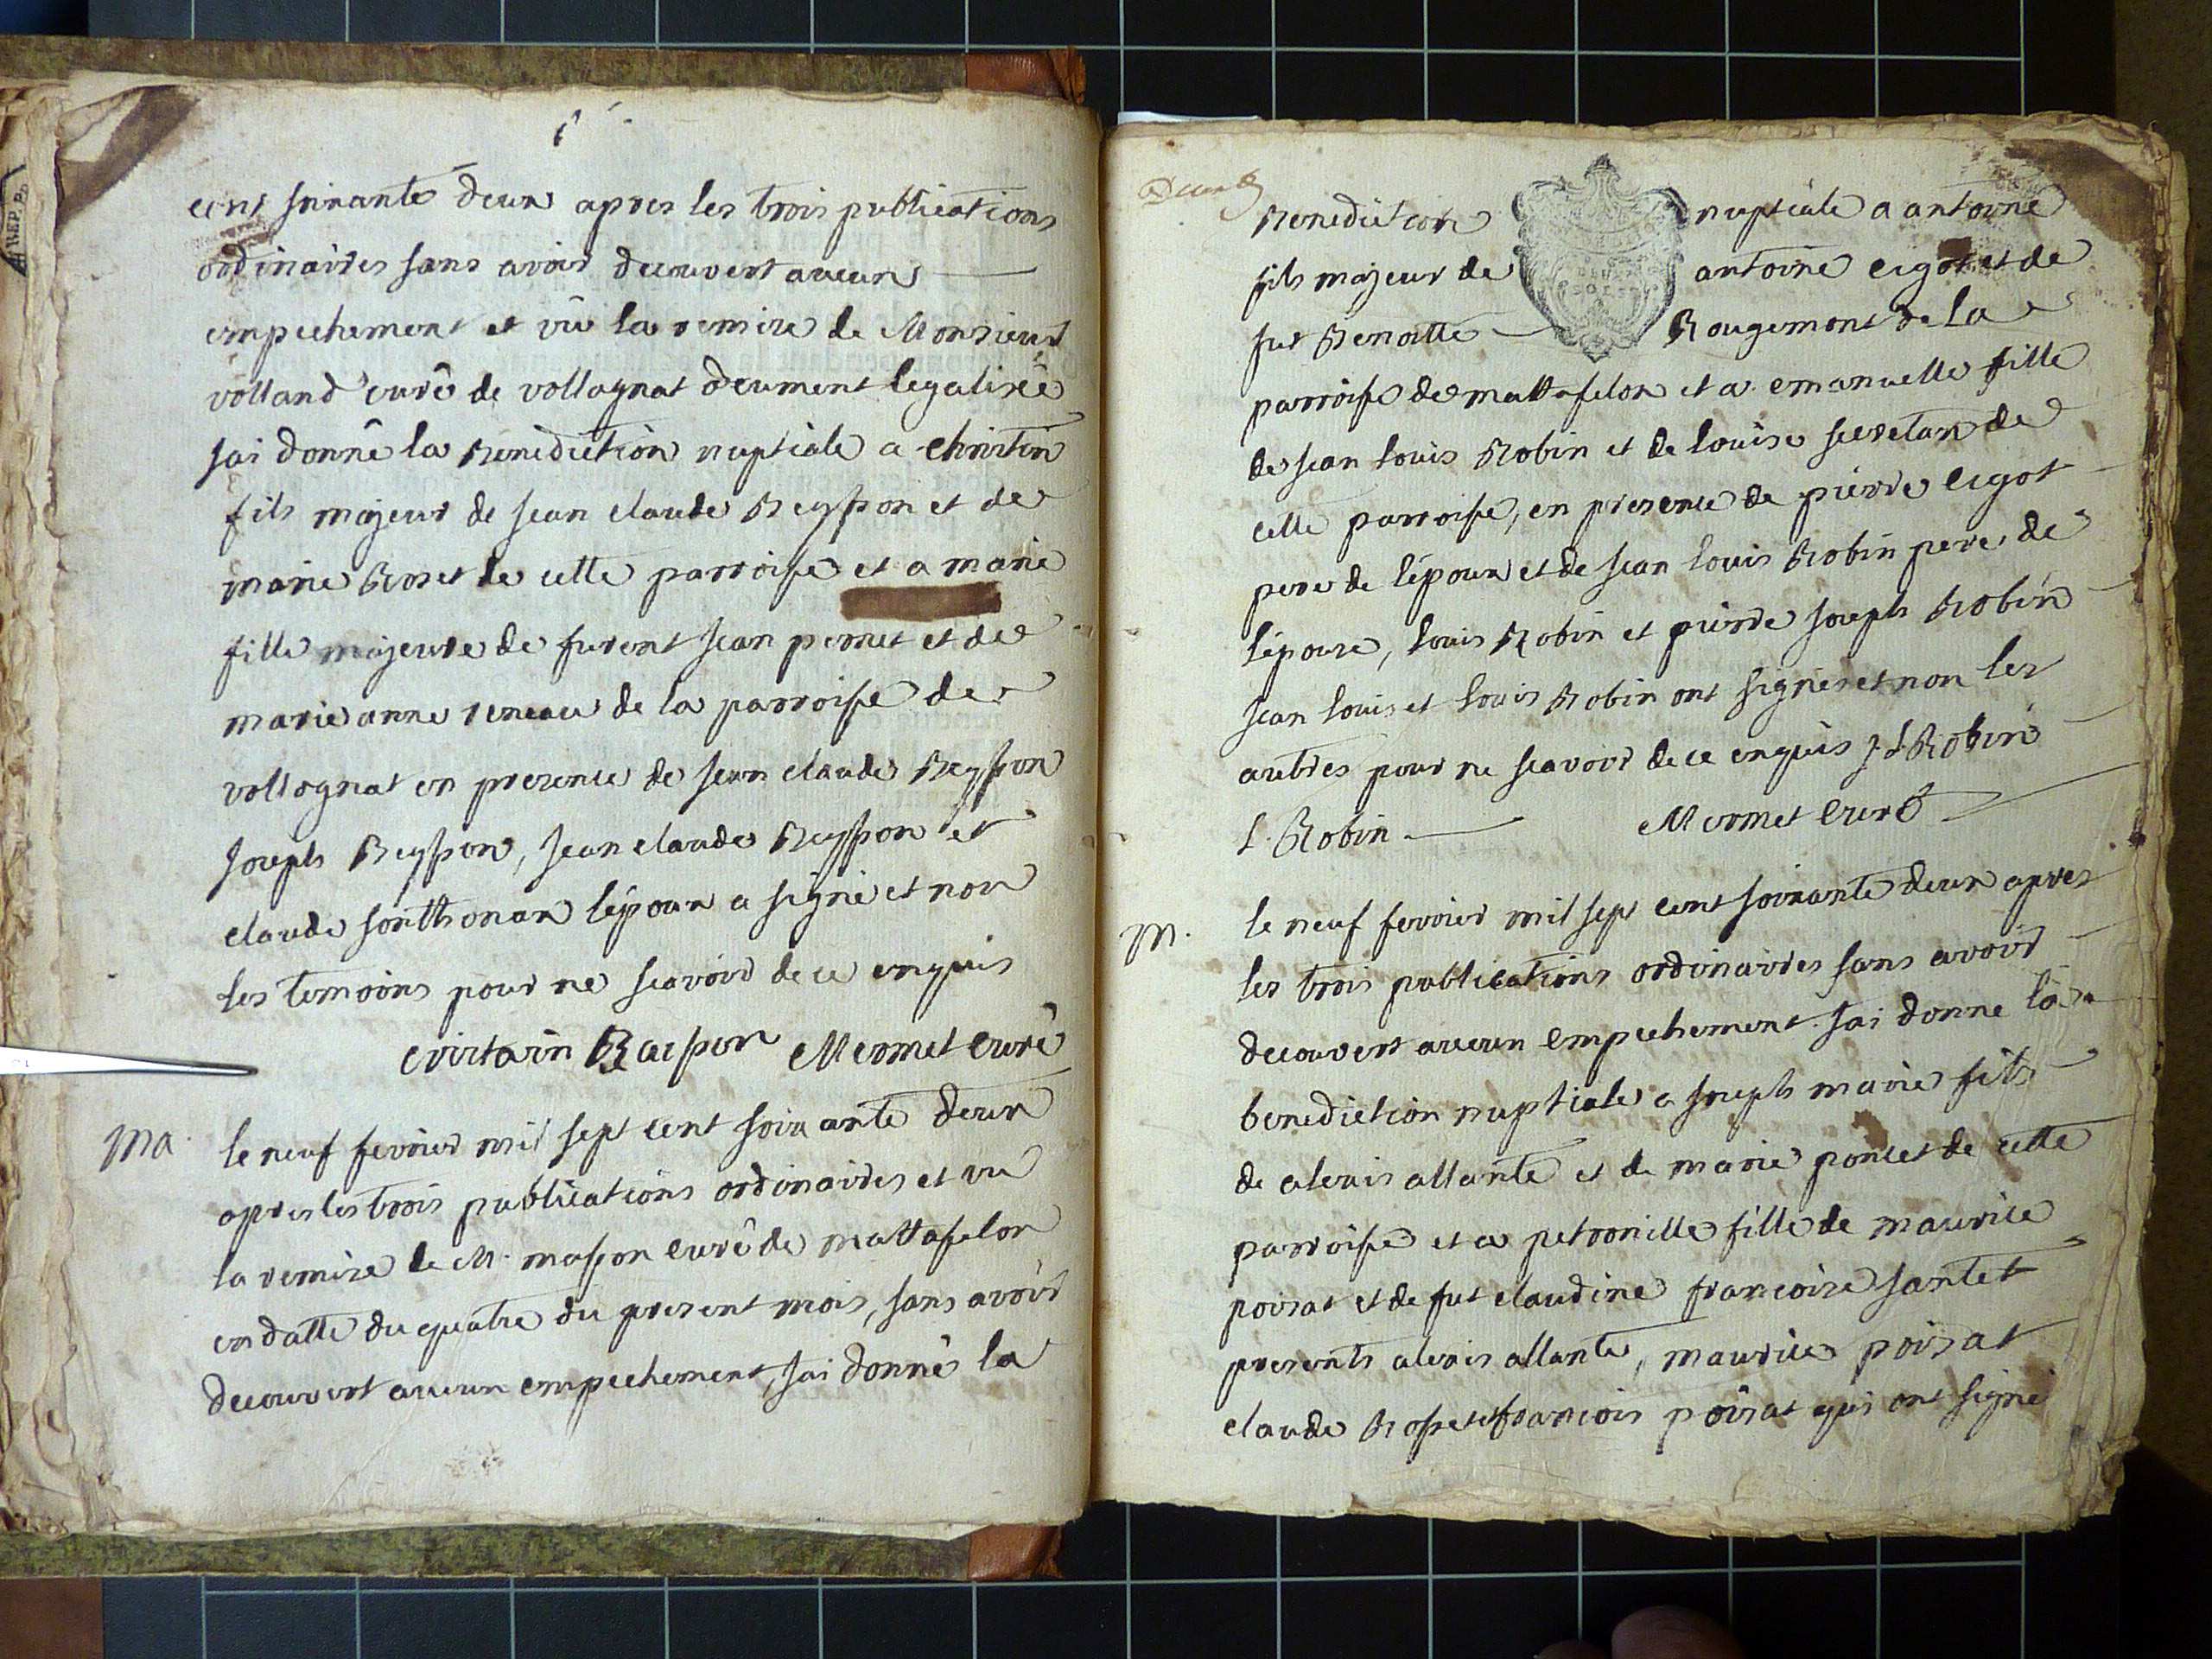 cent soixante deux apres les trois publications
ordinaires sans avoir decouvert aucun
empechement et vû la remise de Monsieur
volland curê de vollognat deument legalisêe
jai donnê la Benediction nuptiale a christin
fils majeur de jean claude Beysson et de
marie Rozet de cette parroisse et a marie
fille majeure de furent jean pernet et de
marie anne de la parroisse de
vollognat en presence de jean claude Beysson
joseph Beysson, jean claude Beysson et
claude sonthonax lépoux a signé et non
les temoins pour ne scavoir de ce enquis
Mermet curê
ma
le neuf fevrier mil sept cent soixante deux
apres les trois publications ordinaires et vu
la remise de M. masson curê de mattafelon
en datte du quatre du present mois, sans avoir
decouvert aucun empechement, jai donnê la
Benediction nuptiale a antoine
fils majeur de antoine cigot et de
fut Benoitte Rougemont de la
parroisse de mattafelon et a emanuelle fille
de jean louis Robin et de louise secretan de
cette parroisse, en presence de pierre cigot
pere de lépoux et de jean louis Robin pere de
lépouse, louis Robin et pierre joseph Robin
jean louis et louis Robin ont signés et non les
autres pour ne scavoir de ce enquis J L Robin
L. Robin Mermet curé
m.
le neuf fevrier mil sept cent soixante deux apres
les trois publications ordinaires sans avoir
decouvert aucun empechement jai donne la
benediction nuptiale a joseph marie fils
de alexis allante et de marie poncet de cette
parroisse et a petronille fille de maurice
poisat et de fut claudine francoise santet
presents alexis allante, maurice poisat
claude Rosset et francois poisat qui ont signé